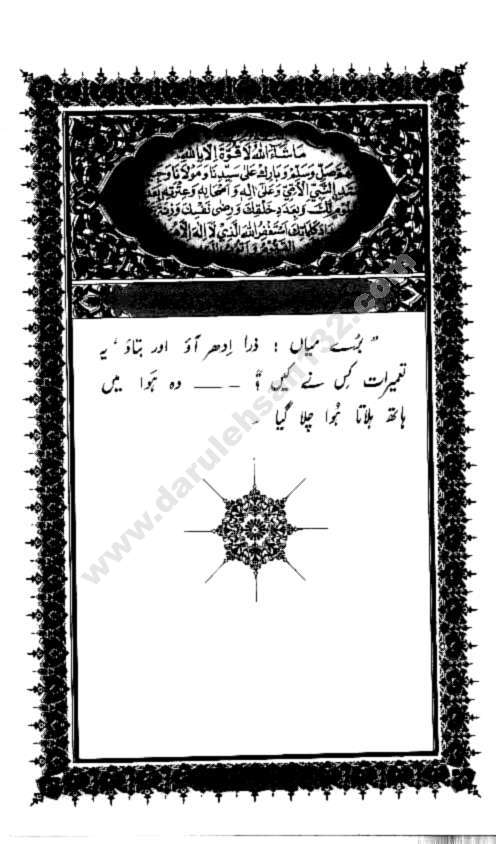 مَاشَآءَ اللهُ لَا قُوَّةَ اِلَّا بِاللهِ
صَلِّ وَسَلِّمْ وَبَارِكْ عَلٰى سَيِّدِنَا وَمَوْلَانَا
النَّبِيِّ الْاُمِّيِّ وَعَلٰى اٰلِهٖ وَاَصْحَابِهٖ وَعِتْرَتِهٖ بِعَدَدِ
وَبِعَدَدِ خَلْقِكَ وَرِضٰى نَفْسِكَ وَزِنَةَ
اَسْتَغْفِرُ اللهَ الَّذِيْ لَا اِلٰهَ اِلَّا هُوَ
"بڑے میاں : ذرا اِدھر آؤ اور بتاؤ ' یہ
تعمیرات کِس نے کیں ؟" ـ ـــ وہ ہَوا میں
ہاتھ ہلاتا ہُوا چلا گیا ـ
www.darulehsan182.com